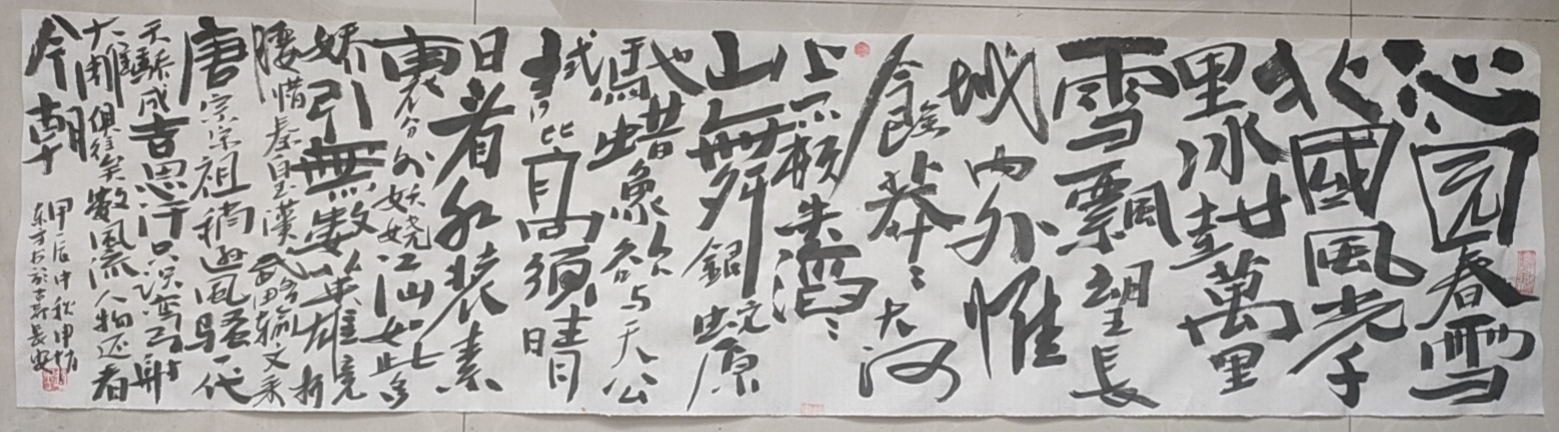 沁园春雪
北國風光千
里冰封萬里
雪飄望長
城内外惟
餘莽々大河
上下顿失滔々
山舞銀蛇原
馳蜡象欲与天公
試比高須晴
日看红装素
裹分外妖娆江山如此多
娇引無數英雄竞折
腰惜秦皇漢武略输文采
唐宗宋祖稍逊風骚一代
天骄成吉思汗只识弯弓射
大雕俱往矣數風流人物还看
今朝
甲辰中秋申
东方书於京長安